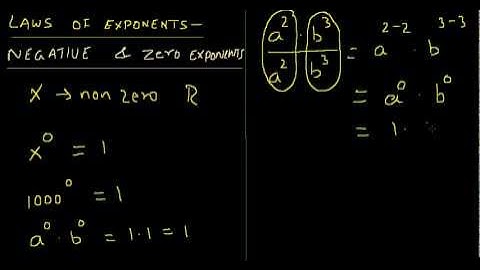 LAWS OF EXPONENTS -
NEGATIVE & Zero EXPONENTS
X → non zero R
x⁰ = 1
1000⁰ = 1
a⁰ · b⁰ = 1 · 1 = 1
a² · b³ / a² b³ = a²⁻² · b³⁻³
= a⁰ · b⁰
= 1 ·